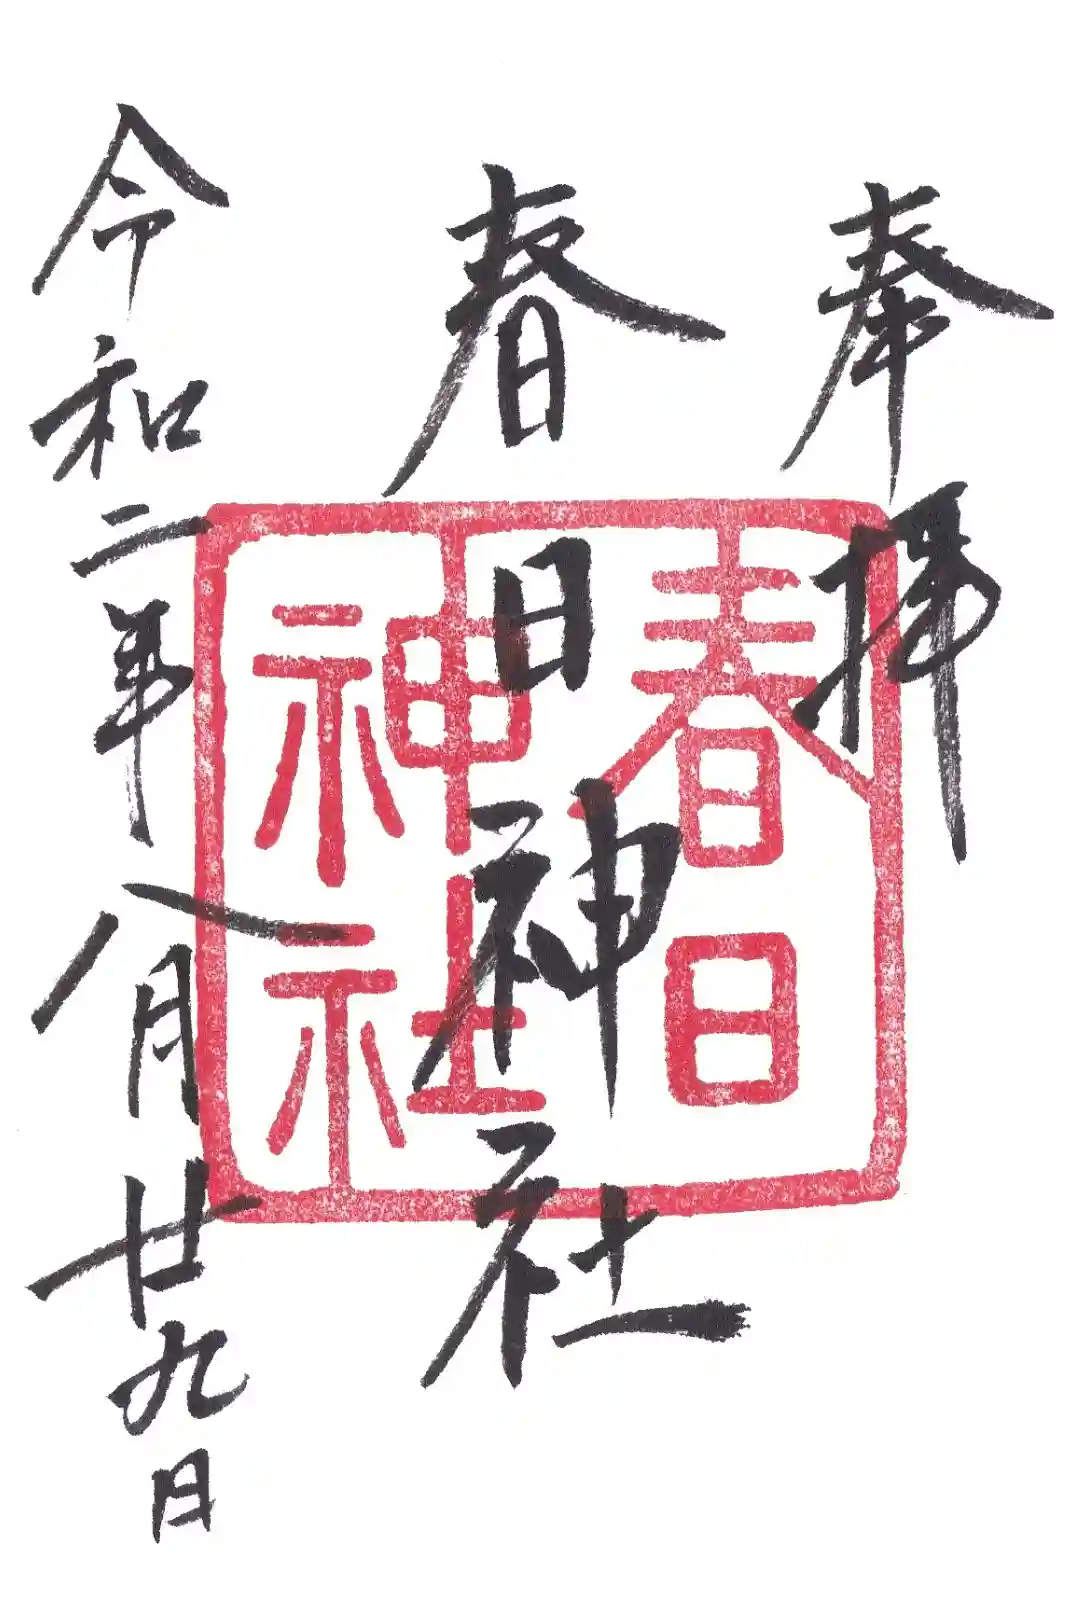 奉拝
春日神社
令和二年八月廿九日
春日
神社